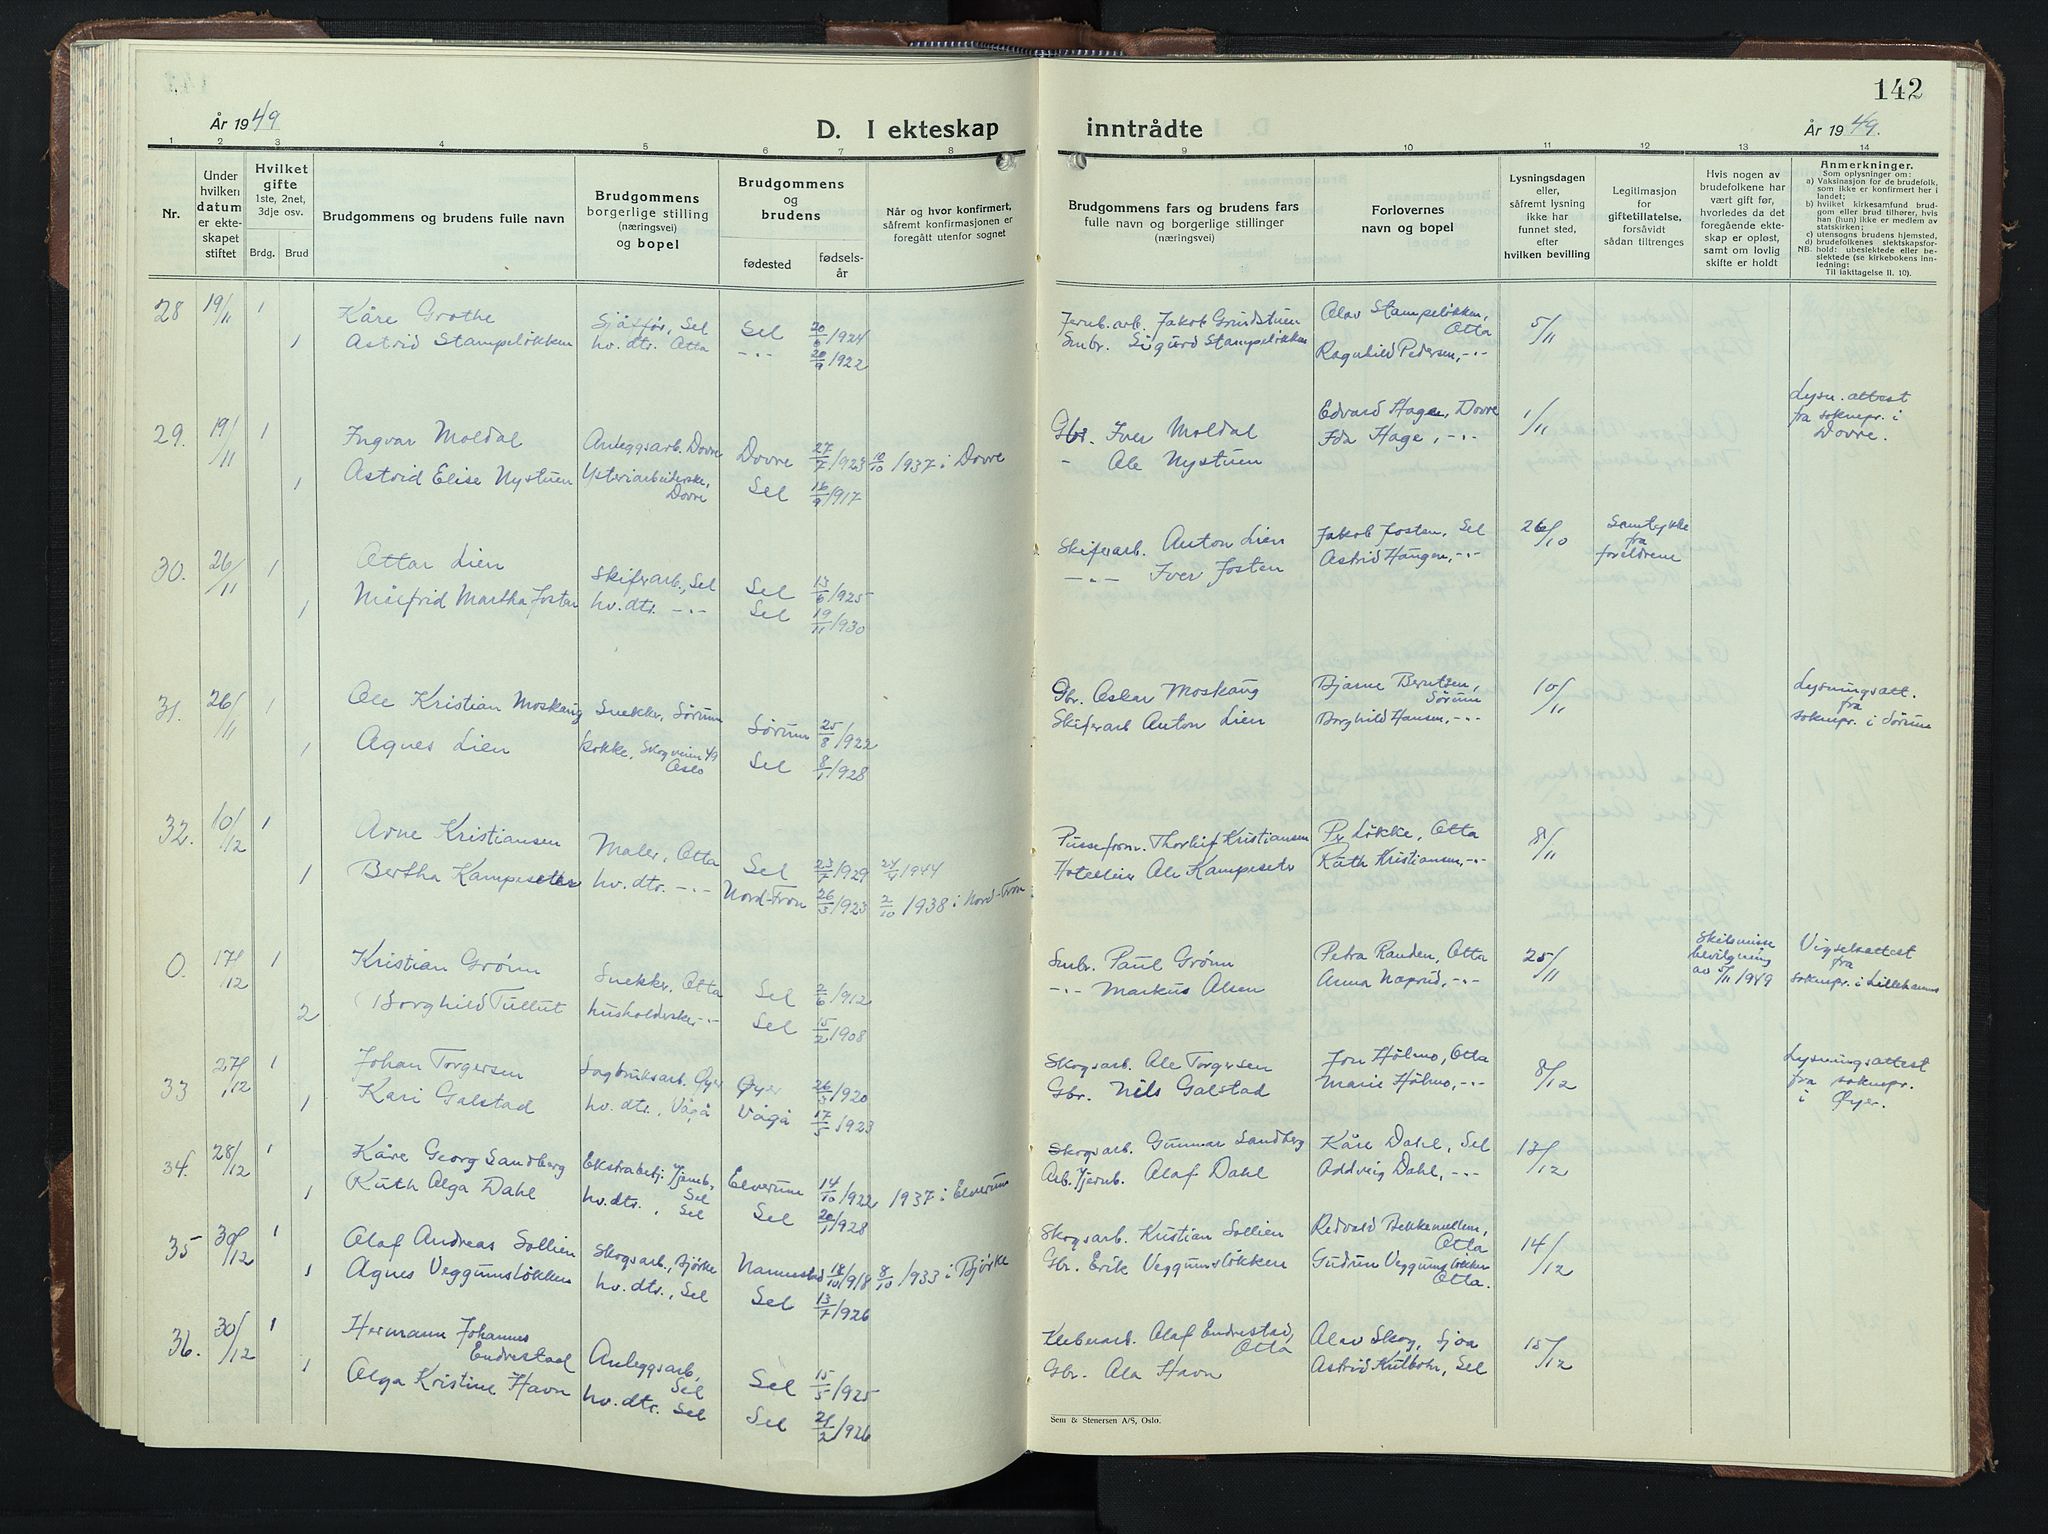 142
År 1949
D. I ekteskap
inntrådte
År 1949.
1 2 3 4 5 6 7 8 9 10 11 12 13 14
Nr.
Under hvilken datum er ekteskapet stiftet
Hvilket gifte 1ste, 2net, 3dje osv.
Brdg. Brud
Brudgommens og brudens fulle navn
Brudgommens borgerlige stilling (næringsvei) og bopel
Brudgommens og brudens
fødested
fødselsår
Når og hvor konfirmert, såfremt konfirmasjonen er foregått utenfor sognet
Brudgommens fars og brudens fars fulle navn og borgerlige stillinger (næringsvei)
Forlovernes navn og bopel
Lysningsdagen eller, såfremt lysning ikke har funnet sted, efter hvilken bevilling
Legitimasjon for giftetillatelse, forsåvidt sådan tiltrenges
Hvis nogen av brudefolkene har vært gift før, hvorledes da det foregående ekteskap er opløst, samt om lovlig skifte er holdt
Anmerkninger.
Som oplysninger om:
a) Vaksinasjon for de brudefolk, som ikke er konfirmert her i landet;
b) hvilket kirkesamfund brudgom eller brud tilhører, hvis han (hun) ikke er medlem av statskirken;
c) utensogns brudens hjemsted,
d) brudefolkenes slektskapsforhold: ubeslektede eller beslektede (se kirkebokens innledning:
NB.
Til iakttagelse II. 10).
28 19/11 1 Kåre Grothe Sjåfør, Sel Sel 20/6 1924 Jernb.arb. Jakob Grindstuen Olav Stampeløkken, Otta 5/11
1 Astrid Stampeløkken hv. dtr. Otta -"- 20/9 1922 Smbr. Sigurd Stampeløkken Ragnhild Pedersen, -"-
29. 19/11 1 Ingvar Moldal Anleggsarb. Dovre Dovre 27/7 1923 10/10 1937 i Dovre Gbr. Iver Moldal Edvard Hage, Dovre 1/11 Lysn. attest fra soknepr. i Dovre.
1 Astrid Elise Nystuen Ysteriarbeiderske, Dovre Sel 16/9 1917 - Ole Nystuen Ida Hage, -"-
30. 26/11 1 Ottar Lien Skiferarb., Sel Sel 13/6 1925 Skiferarb. Anton Lien Jakob Josten, Sel 26/10 Samtykke fra foreldrene
1 Målfrid Martha Josten hv. dtr. -"- Sel 19/11 1930 -"- Iver Josten Astrid Haugen, -"-
31. 26/11 1 Ole Kristian Moskaug Snekker, Sørum Sørum 25/8 1922 Gbr. Oskar Moskaug Bjarne Berntsen, Sørum 10/11 Lysningsatt. fra soknepr. i Sørum
1 Agnes Lien kokke, Skogveien 49 Oslo Sel 8/1 1928 Skiferarb Anton Lien Borghild Hansen, -"-
32. 10/12 1 Arne Kristiansen Maler, Otta Sel 23/7 1929 1944 Pusseform. Thorleif Kristiansen Pr. Løkke, Otta 8/11
1 Bertha Kampeseter hv. dtr. -"- Nord-Fron 26/3 1923 2/10 1938 i Nord-Fron Hotelleier Ole Kampeseter Ruth Kristiansen, -"-
0. 17/12 1 Kristian Grønn Snekker, Otta Sel 2/6 1912 Smbr. Paul Grønn Petra Randen, Otta 25/11 Skilsmisse bevilgning av 5/11 1949 Vigselattest fra soknepr. i Lillehammer
2 Borghild Tullut husholderske -"- Sel 15/2 1908 -"- Markus Olsen Anna Naprud, -"-
33 27/12 1 Johan Torgersen Sagbruksarb. Øyer Øyer 26/3 1920 Skogsarb. Ole Torgersen Jon Holmo, Otta 8/12 Lysningsattest fra soknepr. i Øyer.
1 Kari Galstad hv. dtr., Vågå Vågå 17/5 1923 Gbr. Nils Galstad Marie Holmo, -"-
34. 28/12 1 Kåre Georg Sandberg Ekstrabetj. Jernb., Sel Elverum 14/10 1922 1937 i Elverum Skogsarb. Gunnar Sandberg Kåre Dahl, Sel 13/12
1 Ruth Olga Dahl hv. dtr., Sel Sel 20/1 1928 Arb. Jernb. Olaf Dahl Oddveig Dahl, -"-
35 30/12 1 Olaf Andreas Sollien Skogsarb., Bjørke Nannestad 18/10 1918 8/10 1933 i Bjørke Skogsarb. Kristian Sollien Redvald Bekkemellem, Otta 14/12
1 Agnes Veggumsløkken hv. dtr., Sel Sel 13/7 1926 Gbr. Erik Veggumsløkken Gudrun Veggumsløkken Otta.
36. 30/12 1 Hermann Johannes Endrestad Anleggsarb, Sel Sel 15/5 1925 Kleberarb. Olaf Endrestad, Otta Olav Skog, Sjoa 15/12
1 Olga Kristine Havn hv. dtr. Sel Sel 21/2 1926 Gbr. Ola Havn Astrid Kulbohr, Sel
Sem & Stenersen A/S, Oslo.